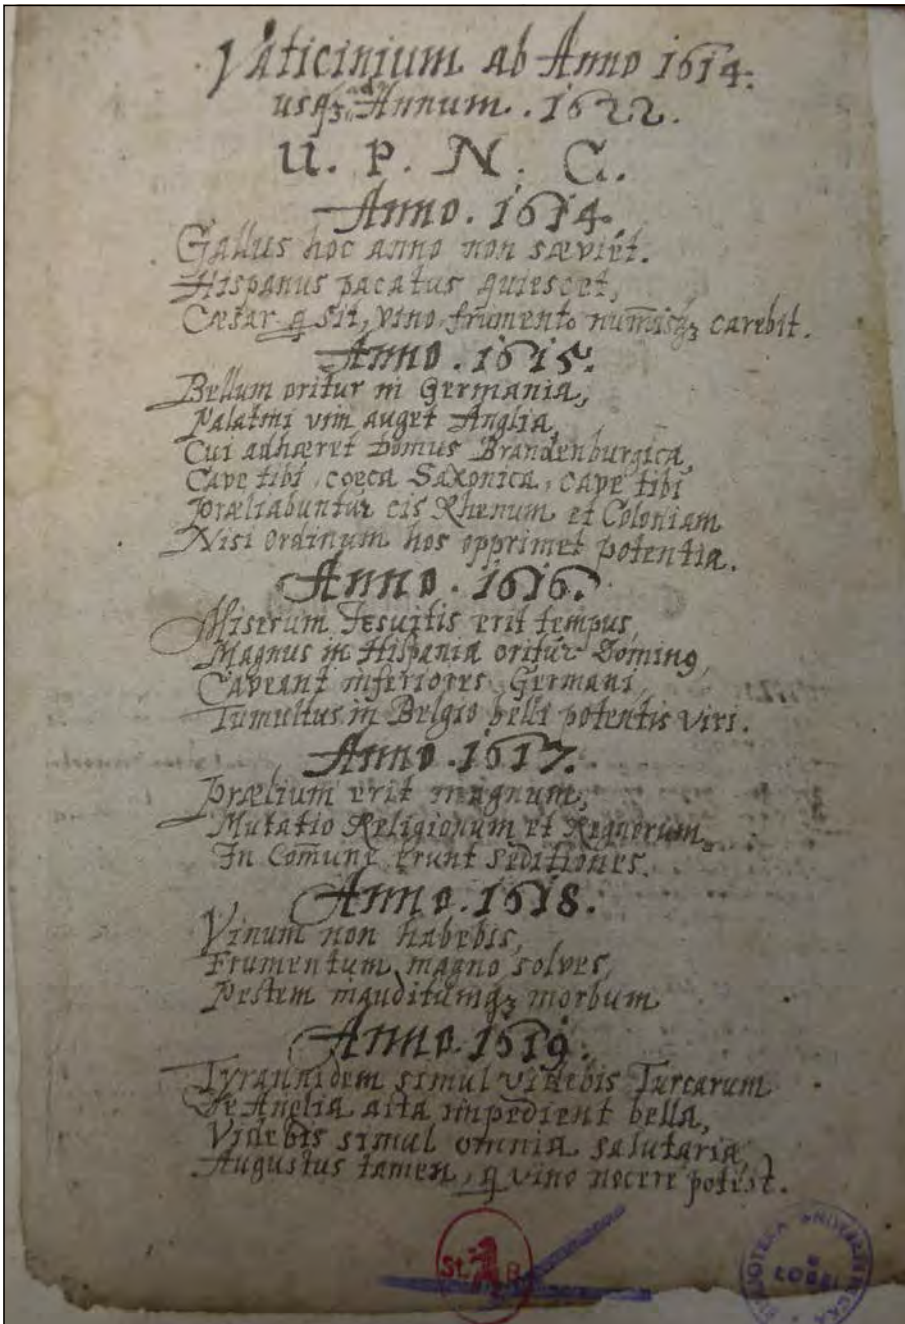 Vaticinium ab Anno 1614.
usq3 ad Annum. 1622.
U. P. N. C.
Anno. 1614.
Gallus hoc anno non sæviet.
Hispanus pacatus quiescet,
Cæsar q sit, vino, frumento num̄isq3 carebit.
Anno. 1615.
Bellum oritur in Germania,
Palatini vim auget Anglia,
Cui adhæret Domus Brandenburgica,
Cave tibi, coeca Saxonica, cave tibi
Præliabuntur cis Rhenum et Coloniam
Nisi Ordinum hos opprimet potentia.
Anno. 1616.
Miserum Jesuitis erit tempus,
Magnus in Hispania oritur Dominꝰ,
Caveant inferiores Germani,
Tumultus in Belgio belli potentis viri.
Anno. 1617.
Prælium erit magnum,
Mutatio Religionum et Regnorum,
In Com̄uni erunt seditiones.
Anno. 1618.
Vinum non habebis,
Frumentum magno solves,
Pestem inauditumq3 morbum
Anno. 1619.
Tyrannidem simul videbis Turcarum
Te Anglia impedient bella,
Videbis simul omnia salutaria,
Augustus tamen, q vino nocere potest.
St. B.
BIBLIOTEKA